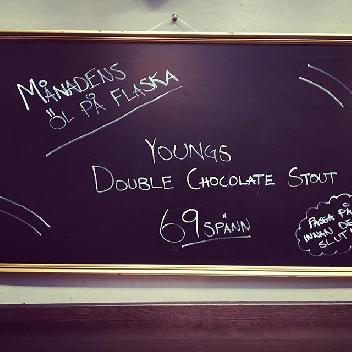 MÅNADENS
ÖL PÅ FLASKA
YOUNGS
DOUBLE CHOCOLATE STOUT
69 SPÄNN
PASSA PÅ
INNAN DE
SLUT